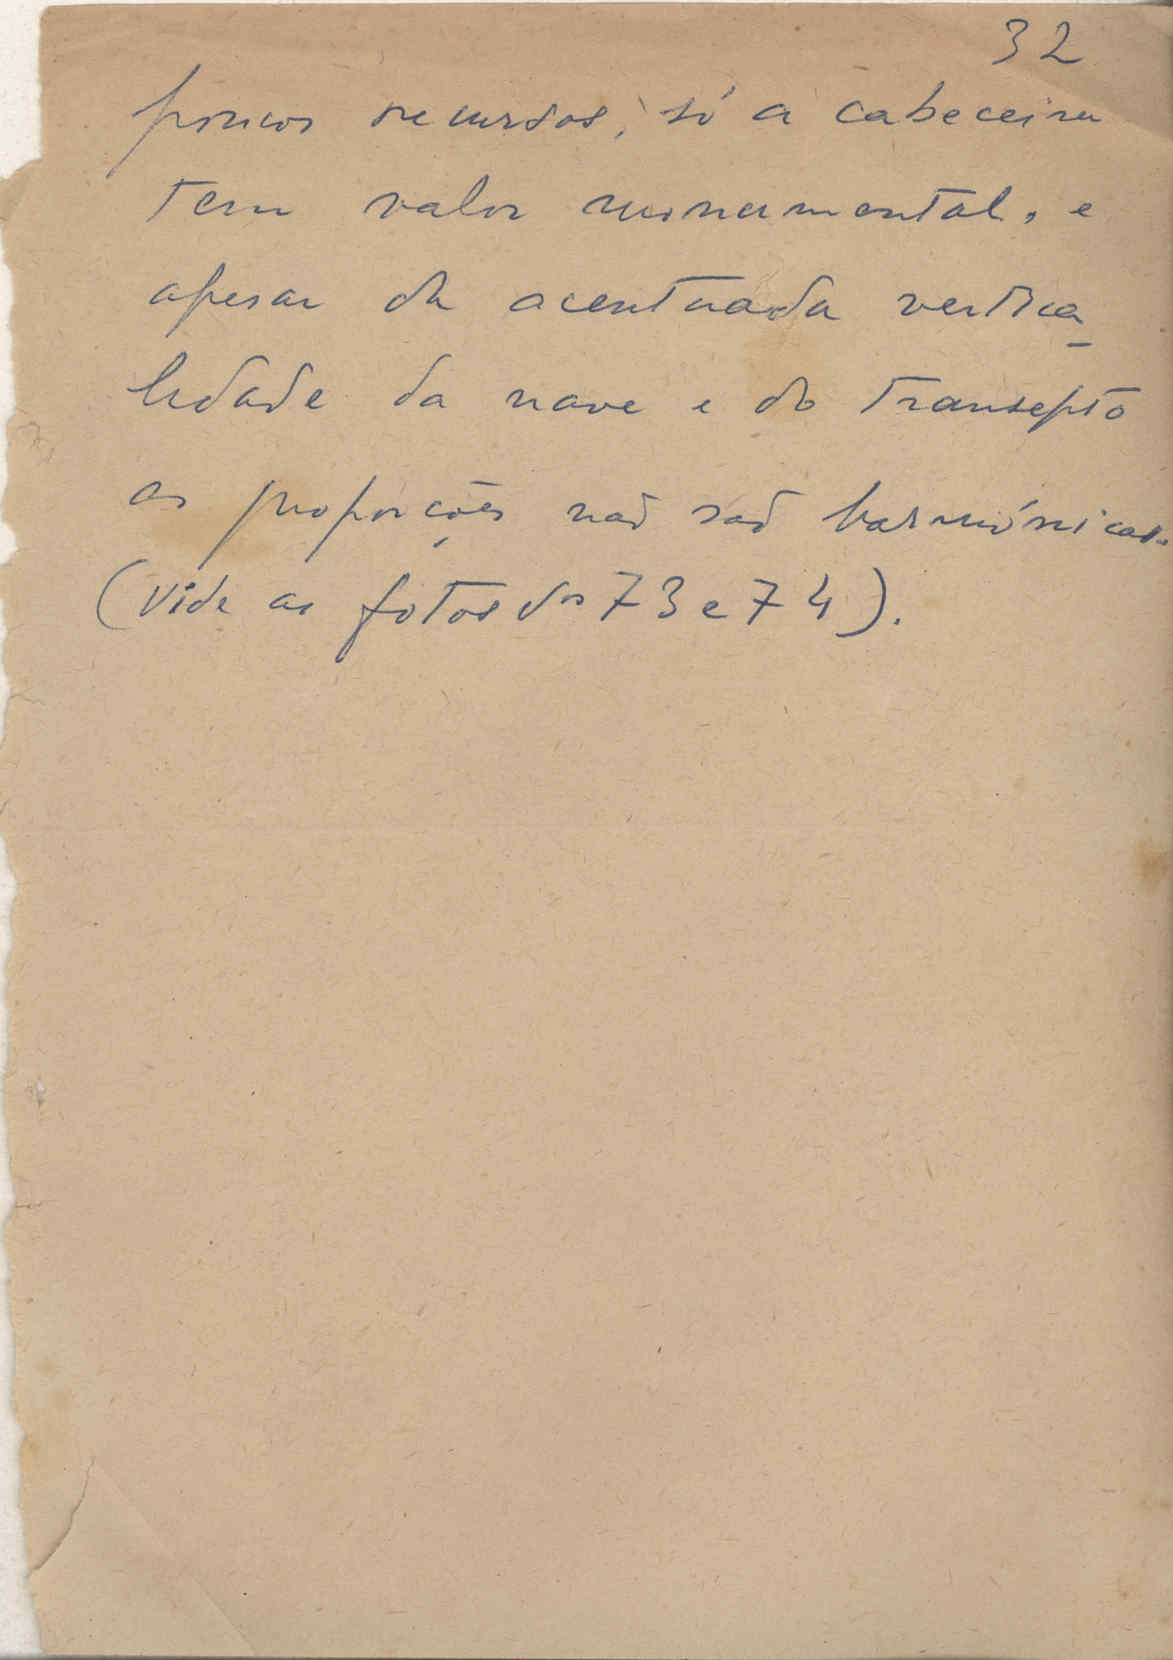 32
poucos recursos, só a cabeceira
tem valor monumental, e
apesar da acentuada vertica_
lidade da nave e do transepto
as proporções não são harmónicas.
(Vide as fotos dos 73 e 74).